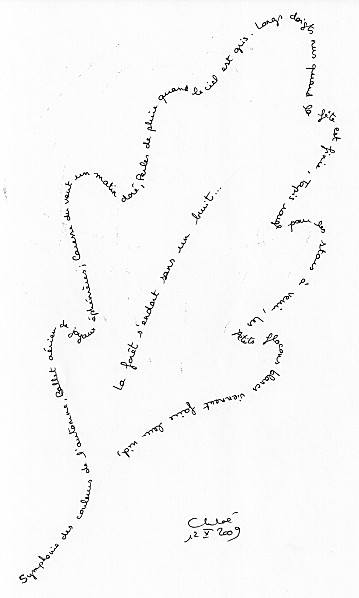 Symphonie des couleurs de l'automne, Ballet aérien éphémères, Caresse du vent un matin doré, Perles de pluie quand le ciel est gris. Longs doigts nus quand la fête est finie, Tapis rouge pour la star à venir, Les petits flocons blancs viennent faire leur nid,
La forêt s'endort sans un bruit...
Chloé
12 X 2009